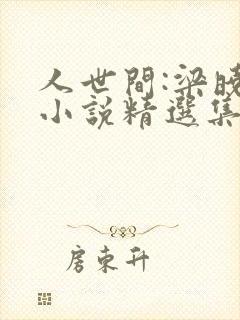 人世間:梁曉
小說精選集
房東升